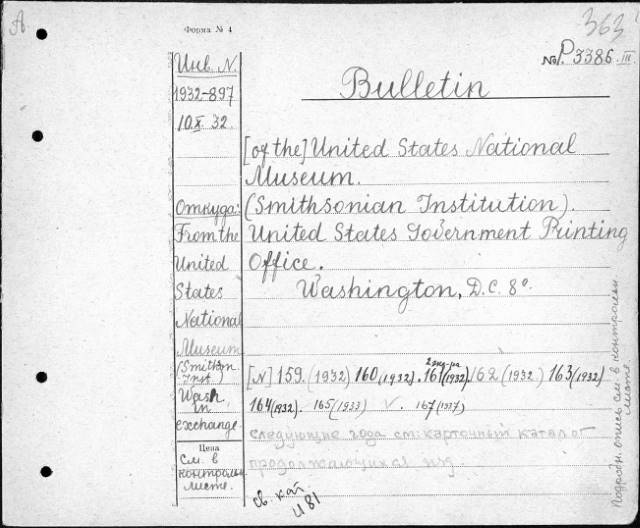 А
Форма № 4
363
No P3386 III.
Инв. N.
1932-897
10.X. 32.
Bulletin
[of the] United States National
Museum.
Откуда:
(Smithsonian Institution).
From the
United States Government Printing
United
Office.
States
Washington, D.C. 8°.
National
Museum
(Smithson
Inst.)
2 экз-ра
[N] 159. (1932) 160 (1932). 161 (1932). 162 (1932) 163 (1932)
Wash.
in
164 (1932). 165 (1933) V. 167 (1937)
exchange.
следующие года см: карточный каталог
Цена
См. в
продолжающихся изд.
контрольн
листе.
св. кат
481
Подробн. опись см. в контрольн
листе